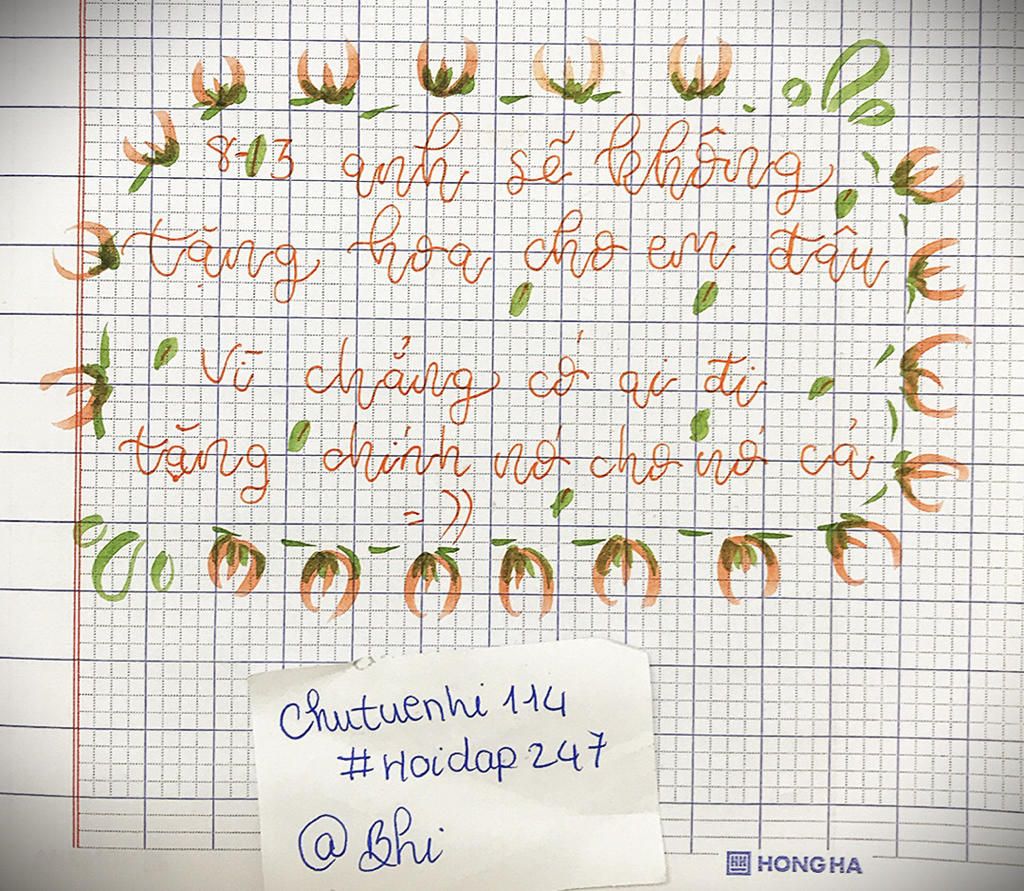 8-3 anh sẽ không
tặng hoa cho em đâu
Vì chẳng có ai đi
tặng chính nó cho nó cả
=))
Chutuenhi 114
#Hoidap 247
@Bhi
HONG HA